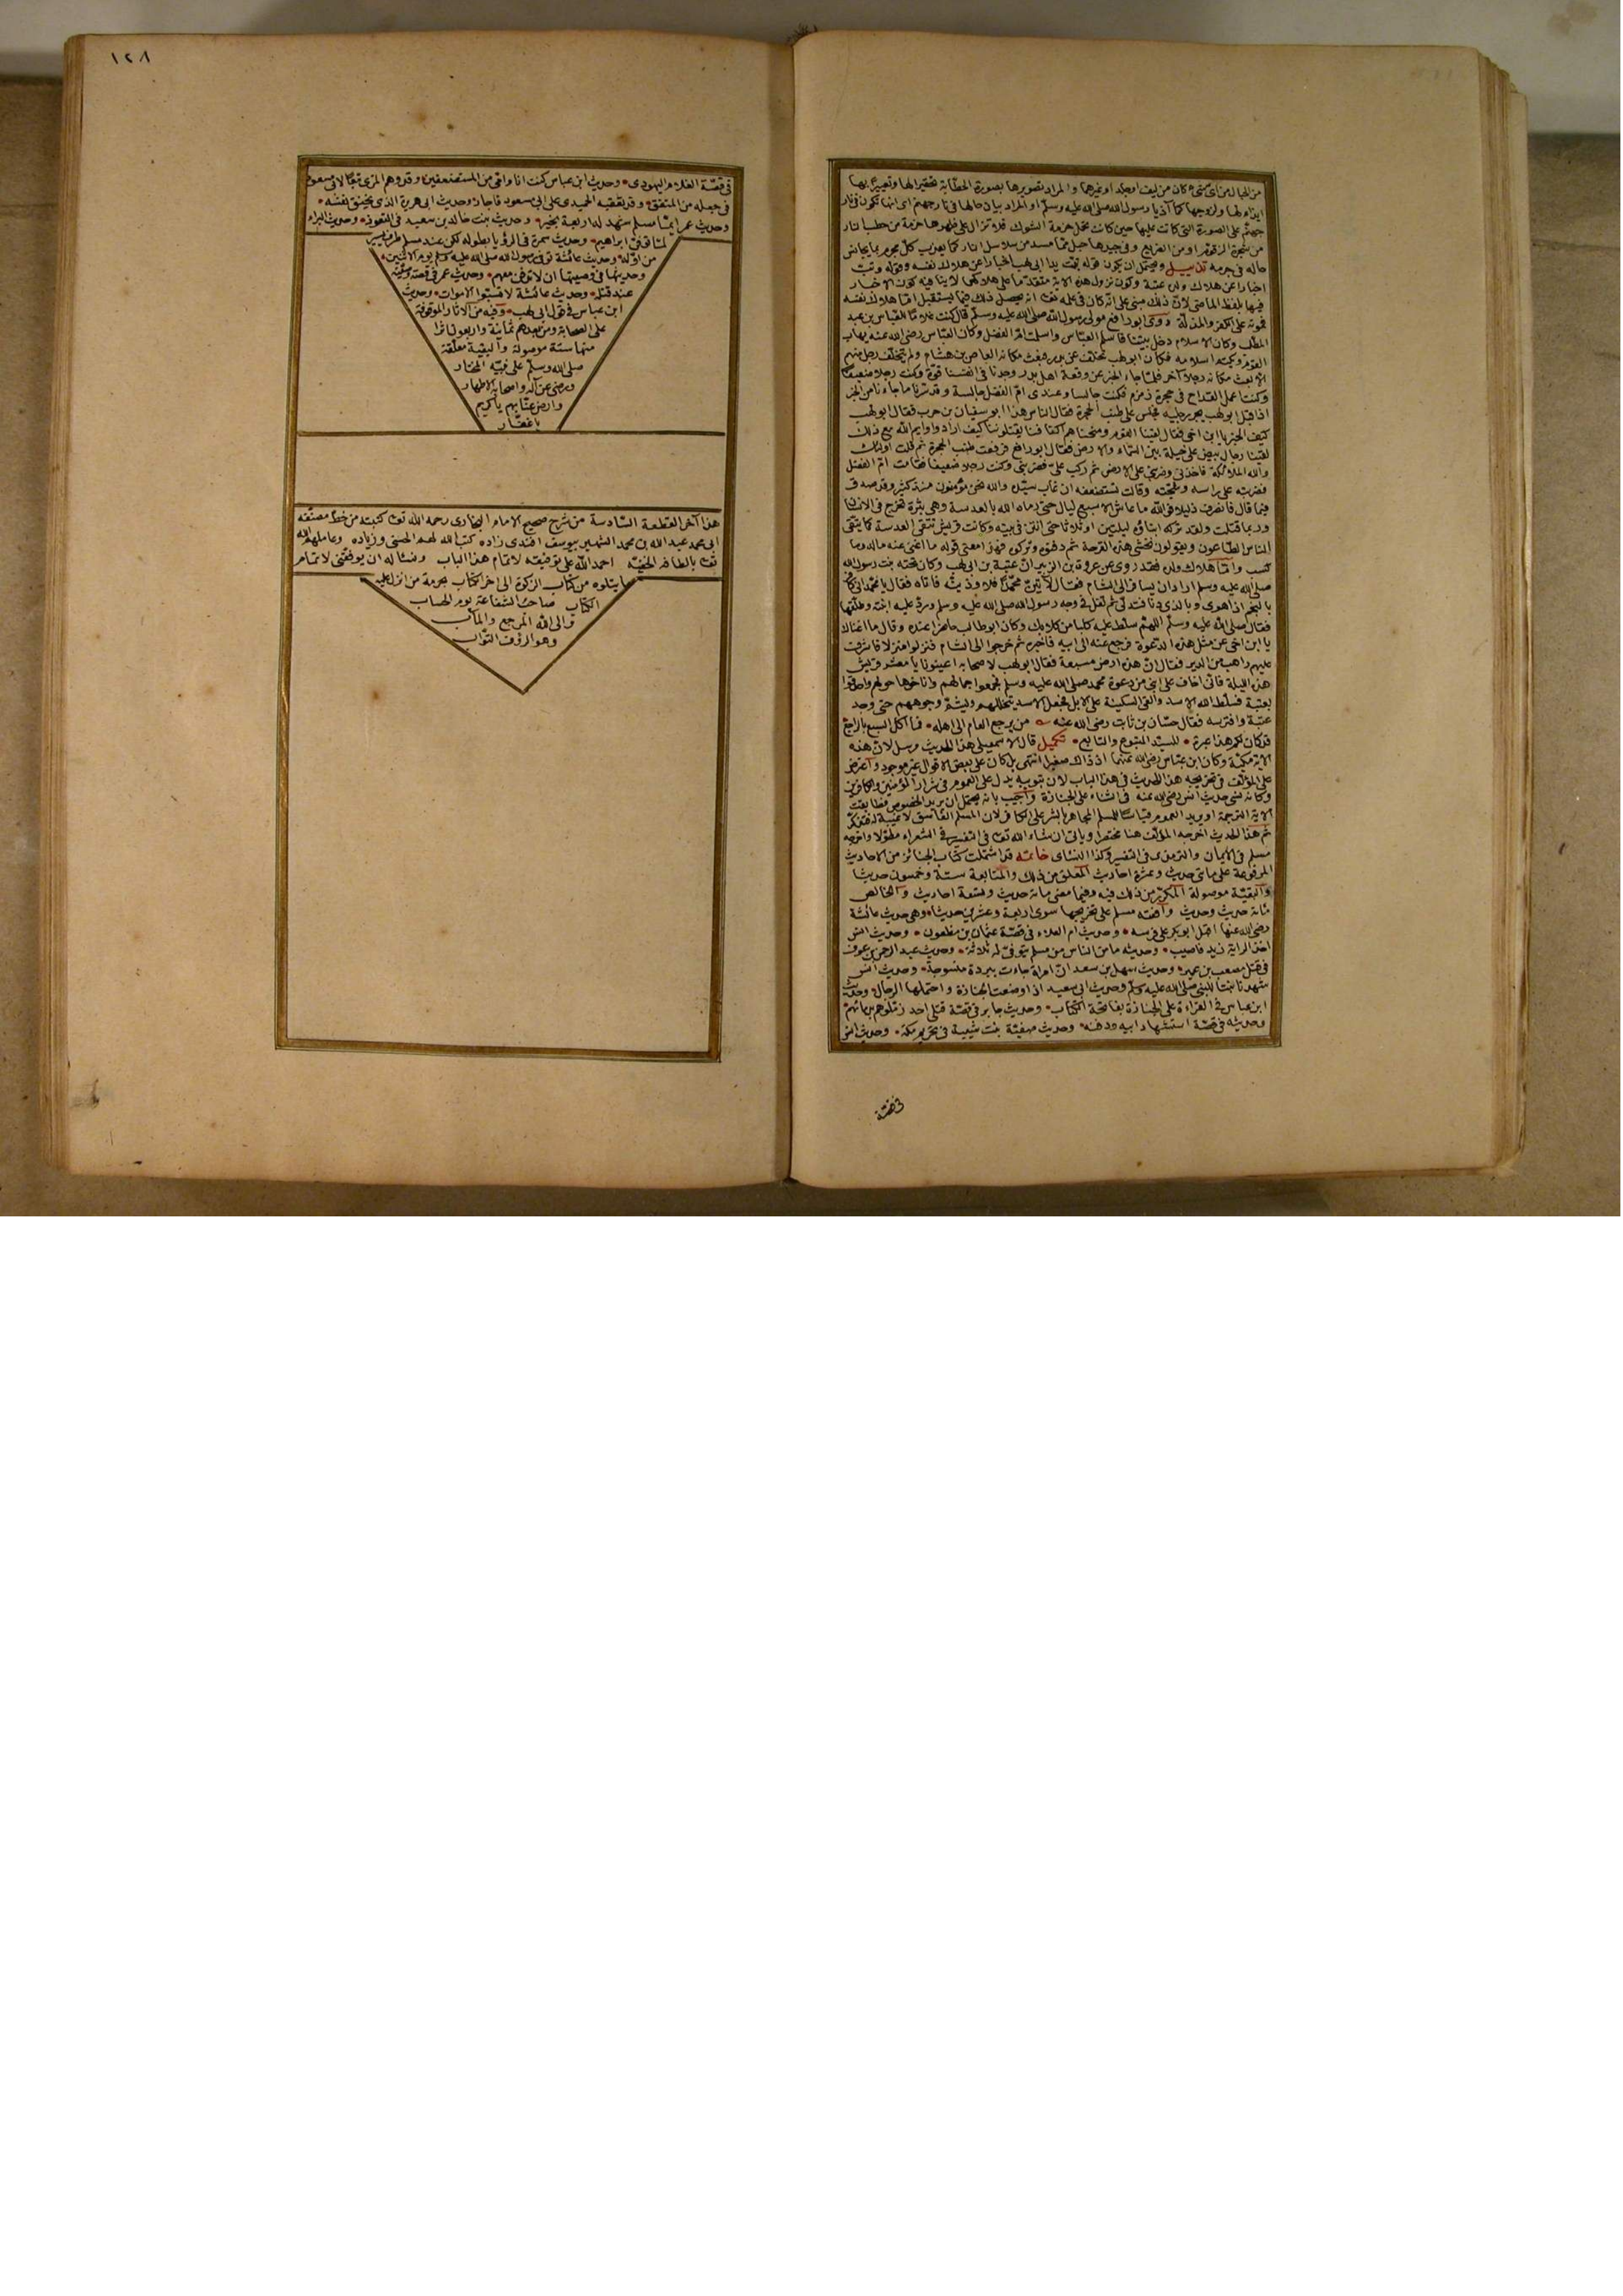 من الحبال من أي شيء كان من ليف أو جلد أو غيرهما والمراد تصويرها بصورة الحطابة تحقيرا لها وتعييرا بها
ايذاء لها ولزوجها كما آذيا رسول الله صلى الله عليه وسلم او المراد بيان حالها في نار جهنم اى انها تكون في نار
جهنم على الصورة التي كانت عليها حين كانت تحمل حزمة الشوك فلا تزال على ظهرها حزمة من حطب النار
من شجرة الزقوم او من الضريع وفي جيدها حبل مما مسد من سلاسل النار كما يعذب كل مجرم بما يجانس
حاله في جرمه تذييل ويحتمل ان يكون قوله تبت يدا ابى لهب اخبارا عن هلاك نفسه وقوله وتب
اخبارا عن هلاك ولده عتبة وكون نزول هذه الآية متقدما على هلاكهما لا ينافيه كون الاخبار
فيها بلفظ الماضى لان ذلك مبنى على انه كان في علمه تعالى انه يحصل ذلك فيما يستقبل اما هلاك نفسه
فموته على الكفر والمذلة روى ابو رافع مولى رسول الله صلى الله عليه وسلم قال كنت غلاما للعباس بن عبد
المطلب وكان الاسلام دخل بيتنا فاسلم العباس واسلمت ام الفضل وكان العباس رضى الله عنه يهاب
القوم ويكتم اسلامه فكان ابو لهب تخلف عن بدر فبعث مكانه العاص بن هشام ولم يتخلف رجل منهم
الا بعث مكانه رجلا آخر فلما جاء الخبر عن وقعة اهل بدر وجدنا في انفسنا قوة وكنت رجلا ضعيفا
وكنت اعمل القداح في حجرة زمزم فكنت جالسا وعندى ام الفضل جالسة وقد سرنا ما جاءنا من الخبر
اذ اقبل ابو لهب يجر رجليه فجلس على طنب الحجرة فقال الناس هذا ابو سفيان بن حرب فقال ابو لهب
كيف الخبر يا ابن اخى فقال لقينا القوم ومنحناهم اكتافنا يقتلوننا كيف ارادوا وايم الله مع ذلك
لقينا رجال بيض على خيل بلق بين السماء والارض فقال ابو رافع فرفعت طنب الحجرة ثم قلت اولئك
والله الملائكة فاخذنى وضربنى على الارض ثم ركب على فضربنى وكنت رجلا ضعيفا فقامت ام الفضل
فضربته على راسه وشجته وقالت تستضعفه ان غاب سيده والله نحن مؤمنون منذ كثير وقد صدق
فيما قال فانصرف ذليلا فوالله ما عاش الا سبع ليال حتى رماه الله بالعدسة وهي بثرة تخرج في الانسان
وربما قتلت ولقد تركه ابناؤه ليلتين او ثلاثا حتى انتن في بيته وكانت قريش تتقى العدسة كما يتقى
الناس الطاعون ويقولون نخشى هذه القرحة ثم دفنوه وتركوه فهذا معنى قوله ما اغنى عنه ماله وما
كسب واما هلاك ولده فقد روى عن عروة بن الزبير ان عتبة بن ابى لهب وكان تحته بنت رسول الله
صلى الله عليه وسلم اراد ان يسافر الى الشام فقال لآتين محمدا فلاوذينه فاتاه فقال يا محمد انى كافر
بالنجم اذا هوى وبالذى دنا فتدلى ثم تفل في وجه رسول الله صلى الله عليه وسلم ورد عليه ابنته وطلقها
فقال صلى الله عليه وسلم اللهم سلط عليه كلبا من كلابك وكان ابو طالب حاضرا عنده وقال ما اغناك
يا ابن اخى عن مثل هذه الدعوة فرجع عتبة الى ابيه فاخبره ثم خرجوا الى الشام فنزلوا منزلا فاشرف
عليهم راهب من الدير فقال ان هذه ارض مسبعة فقال ابو لهب لاصحابه اعينونا يا معشر قريش
هذه الليلة فانى اخاف على ابنى من دعوة محمد صلى الله عليه وسلم فجمعوا جمالهم واناخوها حولهم واحدقوا
بعتبة فسلط الله الاسد والقى السكينة على الابل فجعل الاسد يتخللهم ويشم وجوههم حتى وجد
عتبة وافترسه فقال حسان بن ثابت رضى الله عنه من يرجع العام الى اهله فما اكل السبع بالراجع
قد كان لكم هذا عبرة للسيد المتبوع والتابع تكميل قال الاسمعيلى هذا الحديث مرسل لان هذه
الآية مكية وكان ابن عباس رضى الله عنهما اذ ذاك صغيرا انتهى بل كان على بعض الاقوال غير موجود واعترض
على المؤلف في تخريجه هذا الحديث في هذا الباب لان تبويبه يدل على العموم في شرار المؤمنين والكافرين
وكانه نسى حديث انس رضى الله عنه في الثناء على الجنازة واجيب بانه يحتمل ان يريد الخصوص فطابقت
الآية الترجمة او يريد العموم قياسا للمسلم المجاهر بالشر على الكافر لان المسلم الفاسق لا غيبة له فتفكر
ثم هذا الحديث اخرجه المؤلف هنا مختصرا وياتى ان شاء الله تعالى في التفسير في الشعراء مطولا واخرجه
مسلم في الايمان والترمذى في التفسير وكذا النسائى خاتمة قد اشتملت كتاب الجنائز من الاحاديث
المرفوعة على مائتى حديث وعشرة احاديث المعلق من ذلك والمتابعة ستة وخمسون حديثا
والبقية موصولة المكرر من ذلك فيه وفيما مضى مائة حديث وتسعة احاديث والخالص
مائة حديث وحديث وافقه مسلم على تخريجها سوى اربعة وعشرين حديثا وهي حديث عائشة
رضى الله عنها اقبل ابو بكر على فرسه وحديث ام العلاء في قصة عثمان بن مظعون وحديث انس
اخذ الراية زيد فاصيب وحديثه ما من الناس من مسلم يتوفى له ثلاثة وحديث عبد الرحمن بن عوف
في قتل مصعب بن عمير وحديث سهل بن سعد ان امراة جاءت ببردة منسوجة وحديث انس
شهدنا بنتا للنبى صلى الله عليه وسلم وحديث ابى سعيد اذا وضعت الجنازة واحتملها الرجال وحديث
ابن عباس في القراءة على الجنازة بفاتحة الكتاب وحديث جابر في قصة قتلى احد زملوهم بدمائهم
وحديثه في قصة استشهاد ابيه ودفنه وحديث صفية بنت شيبة في تحريم مكة وحديث انس
في قصة
١٢٨
في قصة الغلام اليهودى وحديث ابن عباس كنت انا وامى من المستضعفين وقد وهم المزى تبعا لابى مسعود
في جعله من المتفق وقد تعقبه الحميدى على ابى مسعود فاجاد وحديث ابى هريرة الذى يخنق نفسه
وحديث عمر ايما مسلم شهد له اربعة بخير وحديث بنت خالد بن سعيد في التعوذ وحديث البراء
لما توفى ابراهيم وحديث سمرة في الرؤيا بطوله لكن عند مسلم طرف يسير
من اوله وحديث عائشة توفى رسول الله صلى الله عليه وسلم يوم الاثنين
وحديثها في وصيتها ان لا تدفن معهم وحديث عمر في قصة وصيته
عند قتله وحديث عائشة لا تسبوا الاموات وحديث
ابن عباس في قول ابى لهب وفيه من الآثار الموقوفة
على الصحابة ومن بعدهم ثمانية واربعون اثرا
منها ستة موصولة والبقية معلقة
صلى الله وسلم على نبيه المختار
ورضى عن آله واصحابه الاطهار
وارض عنا بهم يا كريم
يا غفار
هذا آخر القطعة السادسة من شرح صحيح الامام البخارى رحمه الله تعالى كتبته من خط مصنفه
ابى محمد عبد الله بن محمد الشهير بيوسف افندى زاده كتب الله لهم الحسنى وزياده وعاملهم الله
تعالى بالطافه الخفيه احمد الله على توفيقه لاتمام هذا الباب ونساله ان يوفقنى لاتمام
ما يتلوه من كتاب الزكوة الى اخر الكتاب بحرمة من انزل عليه
الكتاب صاحب الشفاعة يوم الحساب
والى الله المرجع والمآب
وهو الرؤف التواب